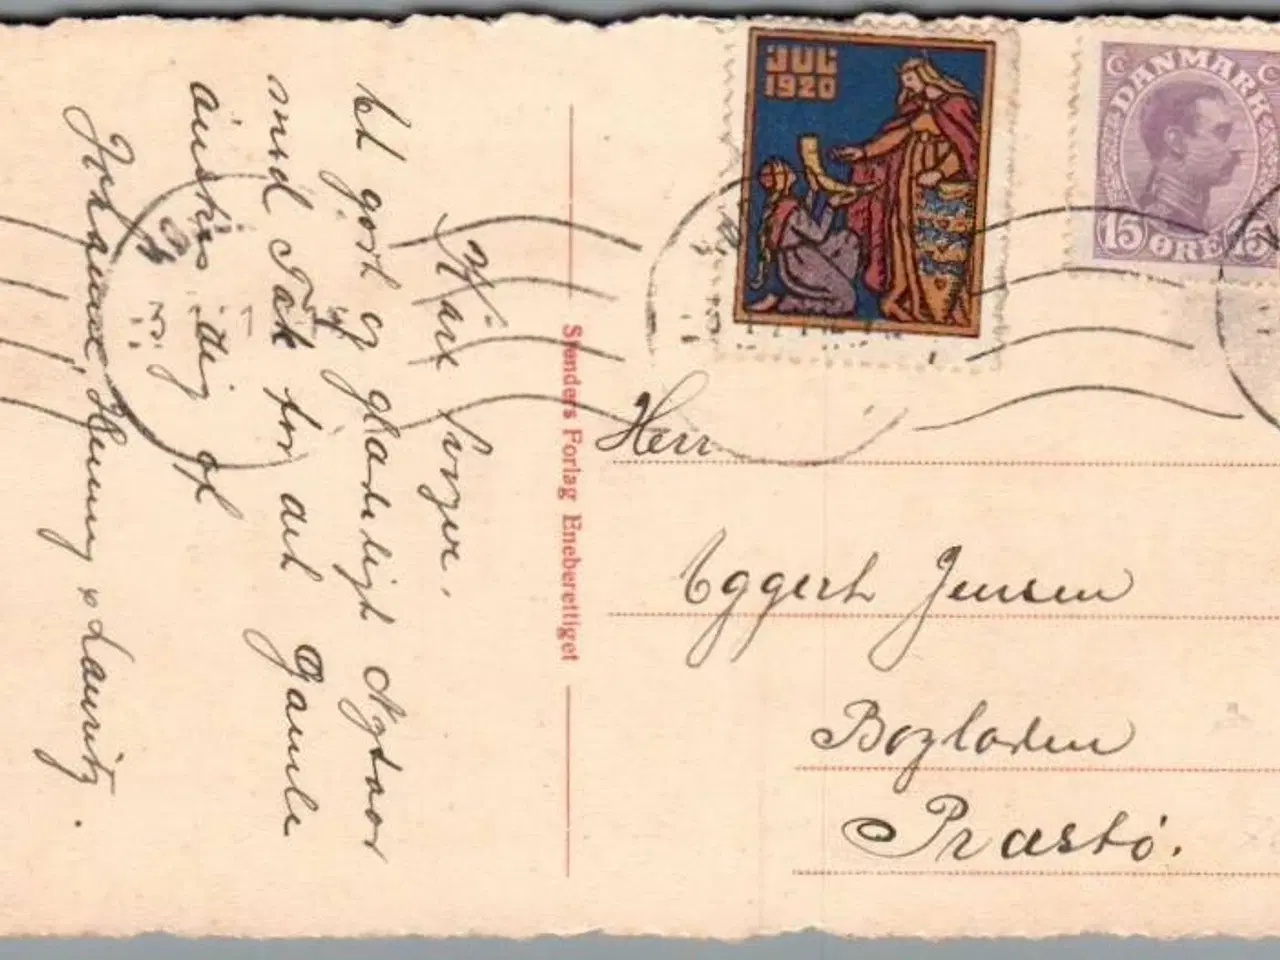 JUL
1920
DANMARK
15 ØRE 15
Kære Sveger.
Et godt og glædeligt Nytaar
med Tak for det Gamle
ønskes dig af
Johanne, Henning & Lauritz.
Stenders Forlag Eneberettiget
Herr
Eggert Jensen
Bogladen
Præstø.